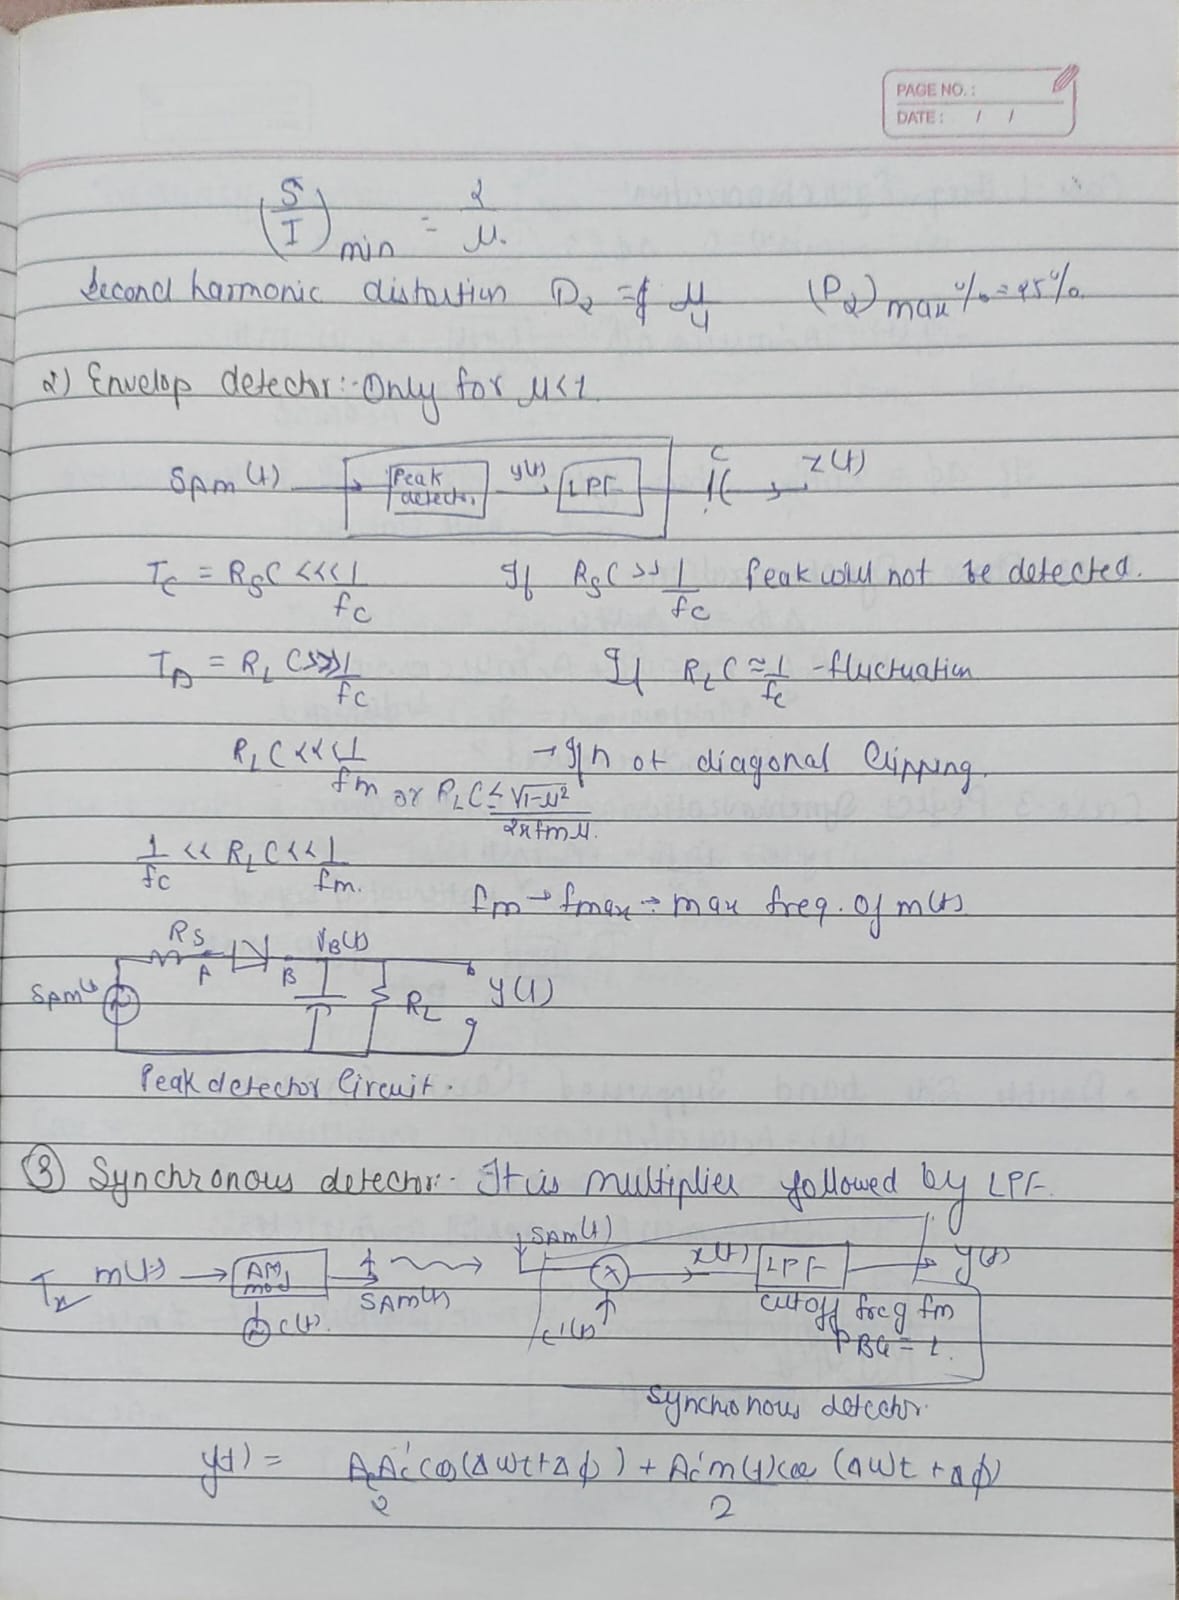 PAGE NO.:
DATE: / /
(S/I)min = 2/μ.
Second harmonic distortion D2 = μ/4 (P2)max% = 25%.
2) Envelop detector:- Only for μ<1.
SAM(t) Peak detector y(t) LPF C z(t)
TC = RSC <<< 1/fC If RSC >> 1/fC Peak will not be detected.
TD = RLC >>> 1/fC If RLC ≈ 1/fc - fluctuation
RLC <<< 1/fm or RLC ≤ √1-μ²/2πfmμ. → If not diagonal Clipping.
1/fc << RLC << 1/fm.
fm → fmax → max freq. of m(t).
RS A B VB(t)
SAM(t) RL y(t)
Peak detector Circuit.
(3) Synchronous detector:- It is multiplier followed by LPF.
Tx m(t) → AM mod SAM(t) SAM(t) × x(t) LPF y(t)
c(t). c'(t) cutoff freq fm
PBG = 1.
Synchronous detector.
y(t) = AcAc'cos(Δwt+Δφ)/2 + Ac'm(t)cos(Δwt+Δφ)/2